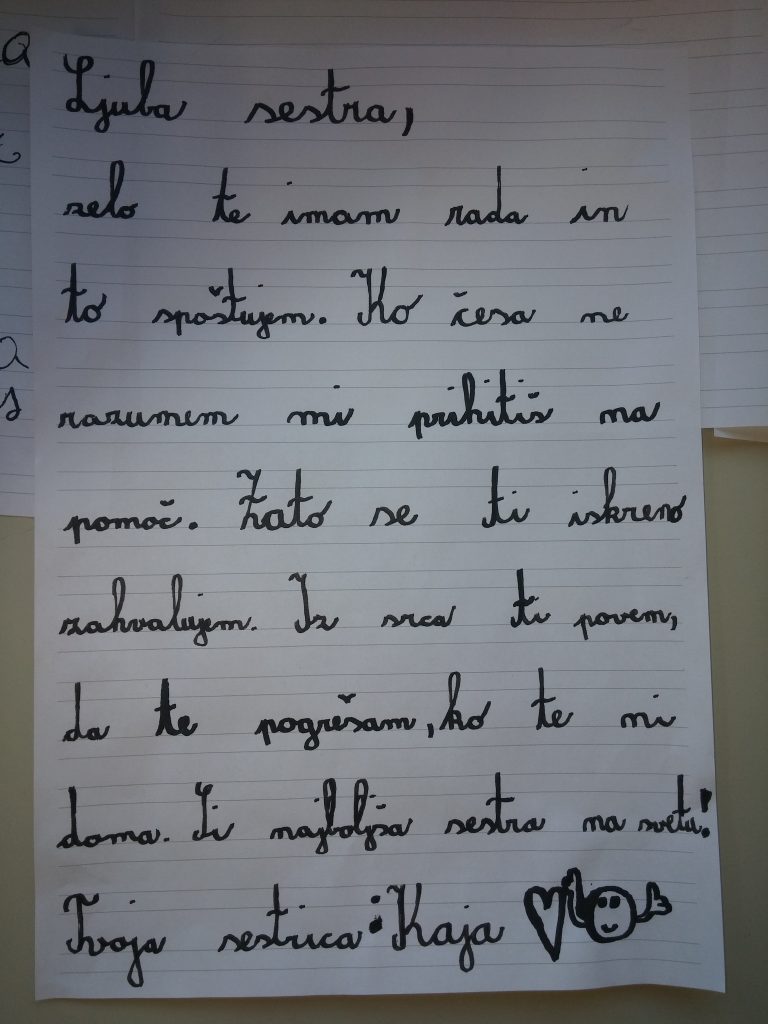 Ljuba sestra,
zelo te imam rada in
to spoštujem. Ko česa ne
razumem mi prihitiš na
pomoč. Zato se ti iskreno
zahvalujem. Iz srca ti povem,
da te pogrešam, ko te ni
doma. Ti najboljša sestra na svetu!
Tvoja sestrica: Kaja